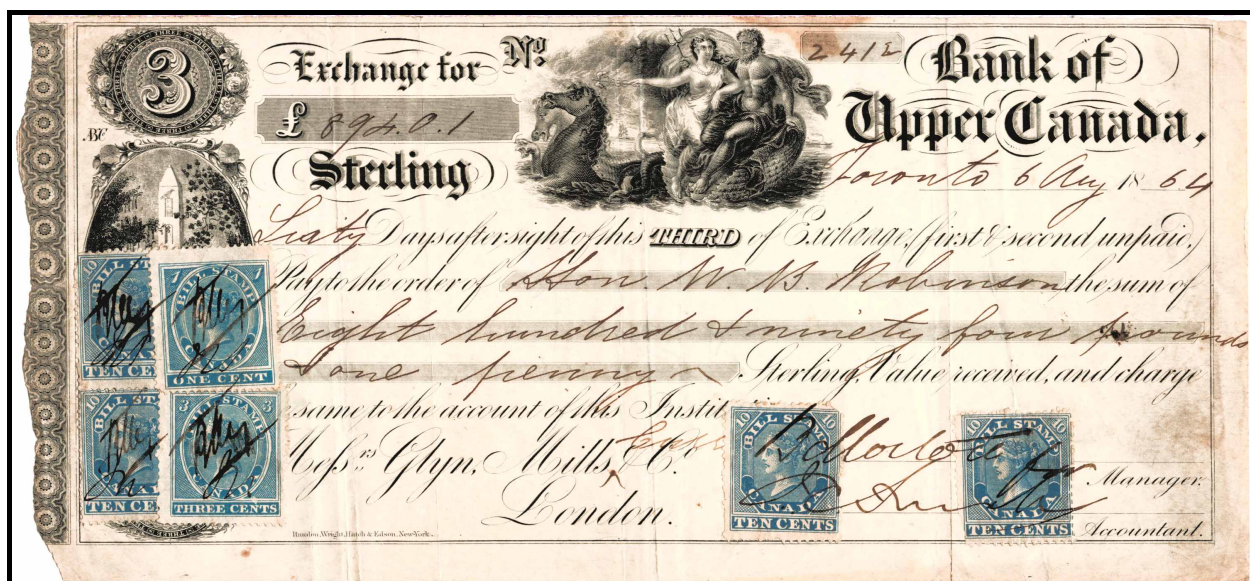 3
Exchange for No. 2412 Bank of
£ 894.0.1 Upper Canada,
Sterling
Toronto 6 Aug 1864
Sixty Days after sight of this THIRD of Exchange, (first & second unpaid,)
Pay to the order of Hon. W. B. Robinson the sum of
Eight hundred & ninety four pounds
& one penny Sterling, Value received, and charge
same to the account of this Instit
Messrs Glyn, Mills & Co.
London.
Manager.
Accountant.
Rawdon, Wright, Hatch & Edson, New-York.
10 BILL ST
TEN CE
1 BILL STAMP 1
CANADA
ONE CENT
10 BILL ST
CANA
TEN CEN
3 BILL STAMP 3
CANADA
THREE CENTS
10 BILL STAMP 10
CANADA
TEN CENTS
10 BILL STAMP 10
CANADA
TEN CENTS